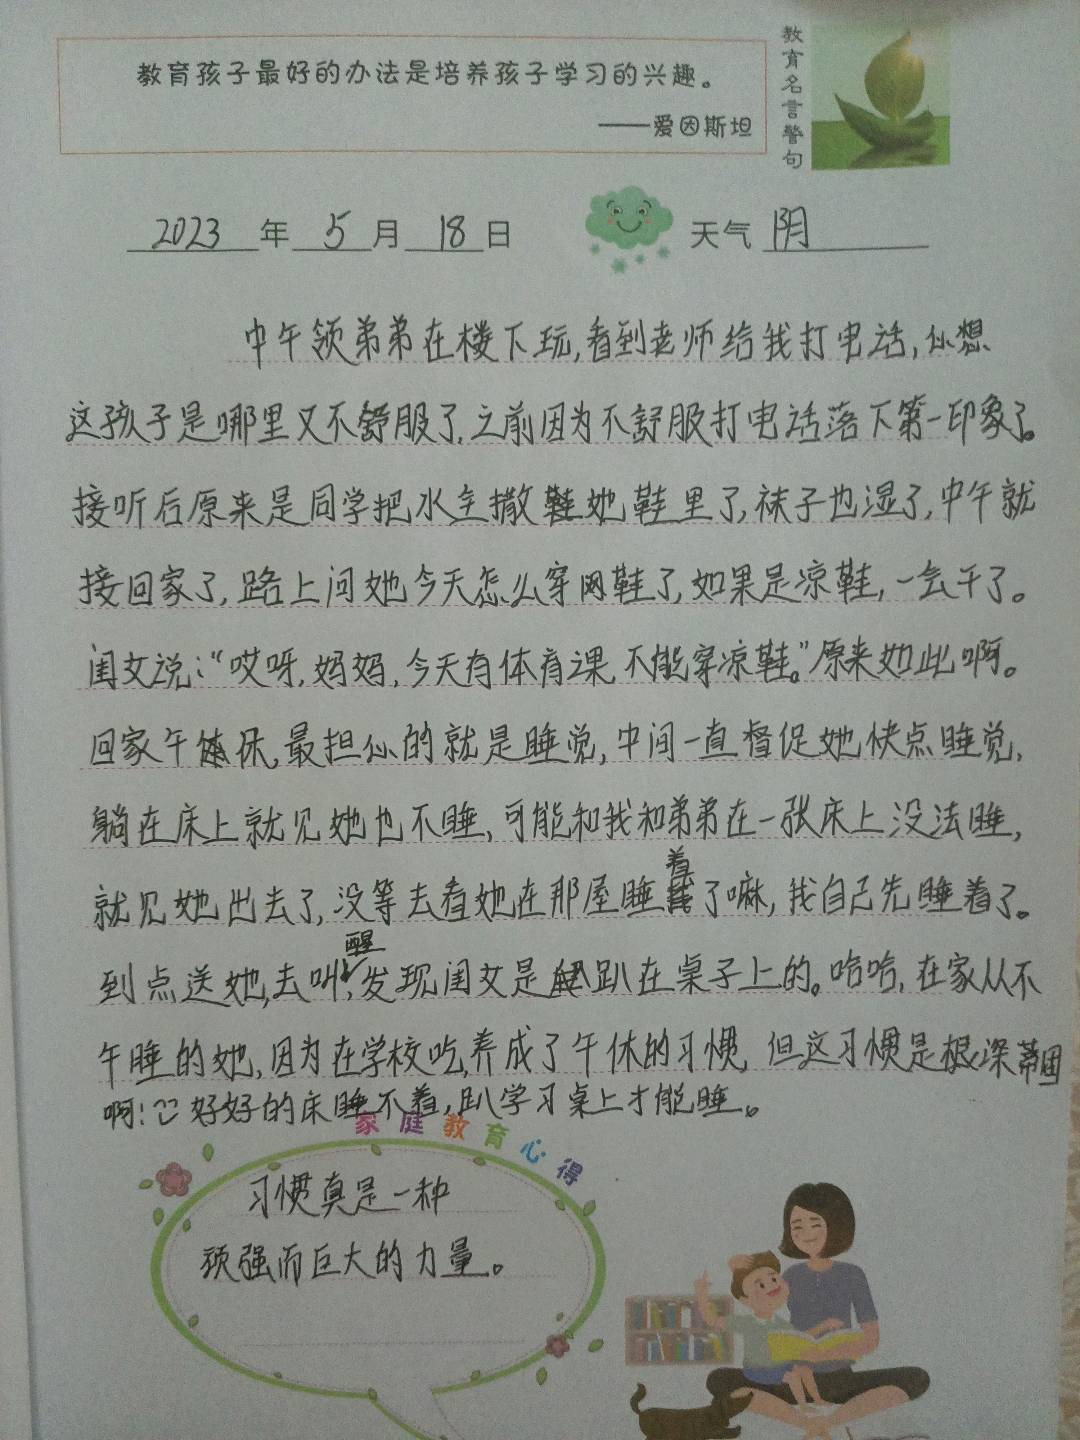 教育孩子最好的办法是培养孩子学习的兴趣。
——爱因斯坦
教育名言警句
2023年5月18日 天气 阴
中午领弟弟在楼下玩,看到老师给我打电话,心想
这孩子是哪里又不舒服了,之前因为不舒服打电话落下第一印象了。
接听后原来是同学把水全撒她鞋里了,袜子也湿了,中午就
接回家了,路上问她今天怎么穿网鞋了,如果是凉鞋,一会干了。
闺女说:“哎呀,妈妈,今天有体育课,不能穿凉鞋。”原来如此啊。
回家午休,最担心的就是睡觉,中间一直督促她快点睡觉,
躺在床上就见她也不睡,可能和我和弟弟在一张床上没法睡,
就见她出去了,没等去看她在那屋睡着了嘛,我自己先睡着了。
到点送她,去叫醒,发现闺女是趴在桌子上的。哈哈,在家从不
午睡的她,因为在学校吃,养成了午休的习惯,但这习惯是根深蒂固
啊!好好的床睡不着,趴学习桌上才能睡。
家庭教育心得
习惯真是一种
顽强而巨大的力量。